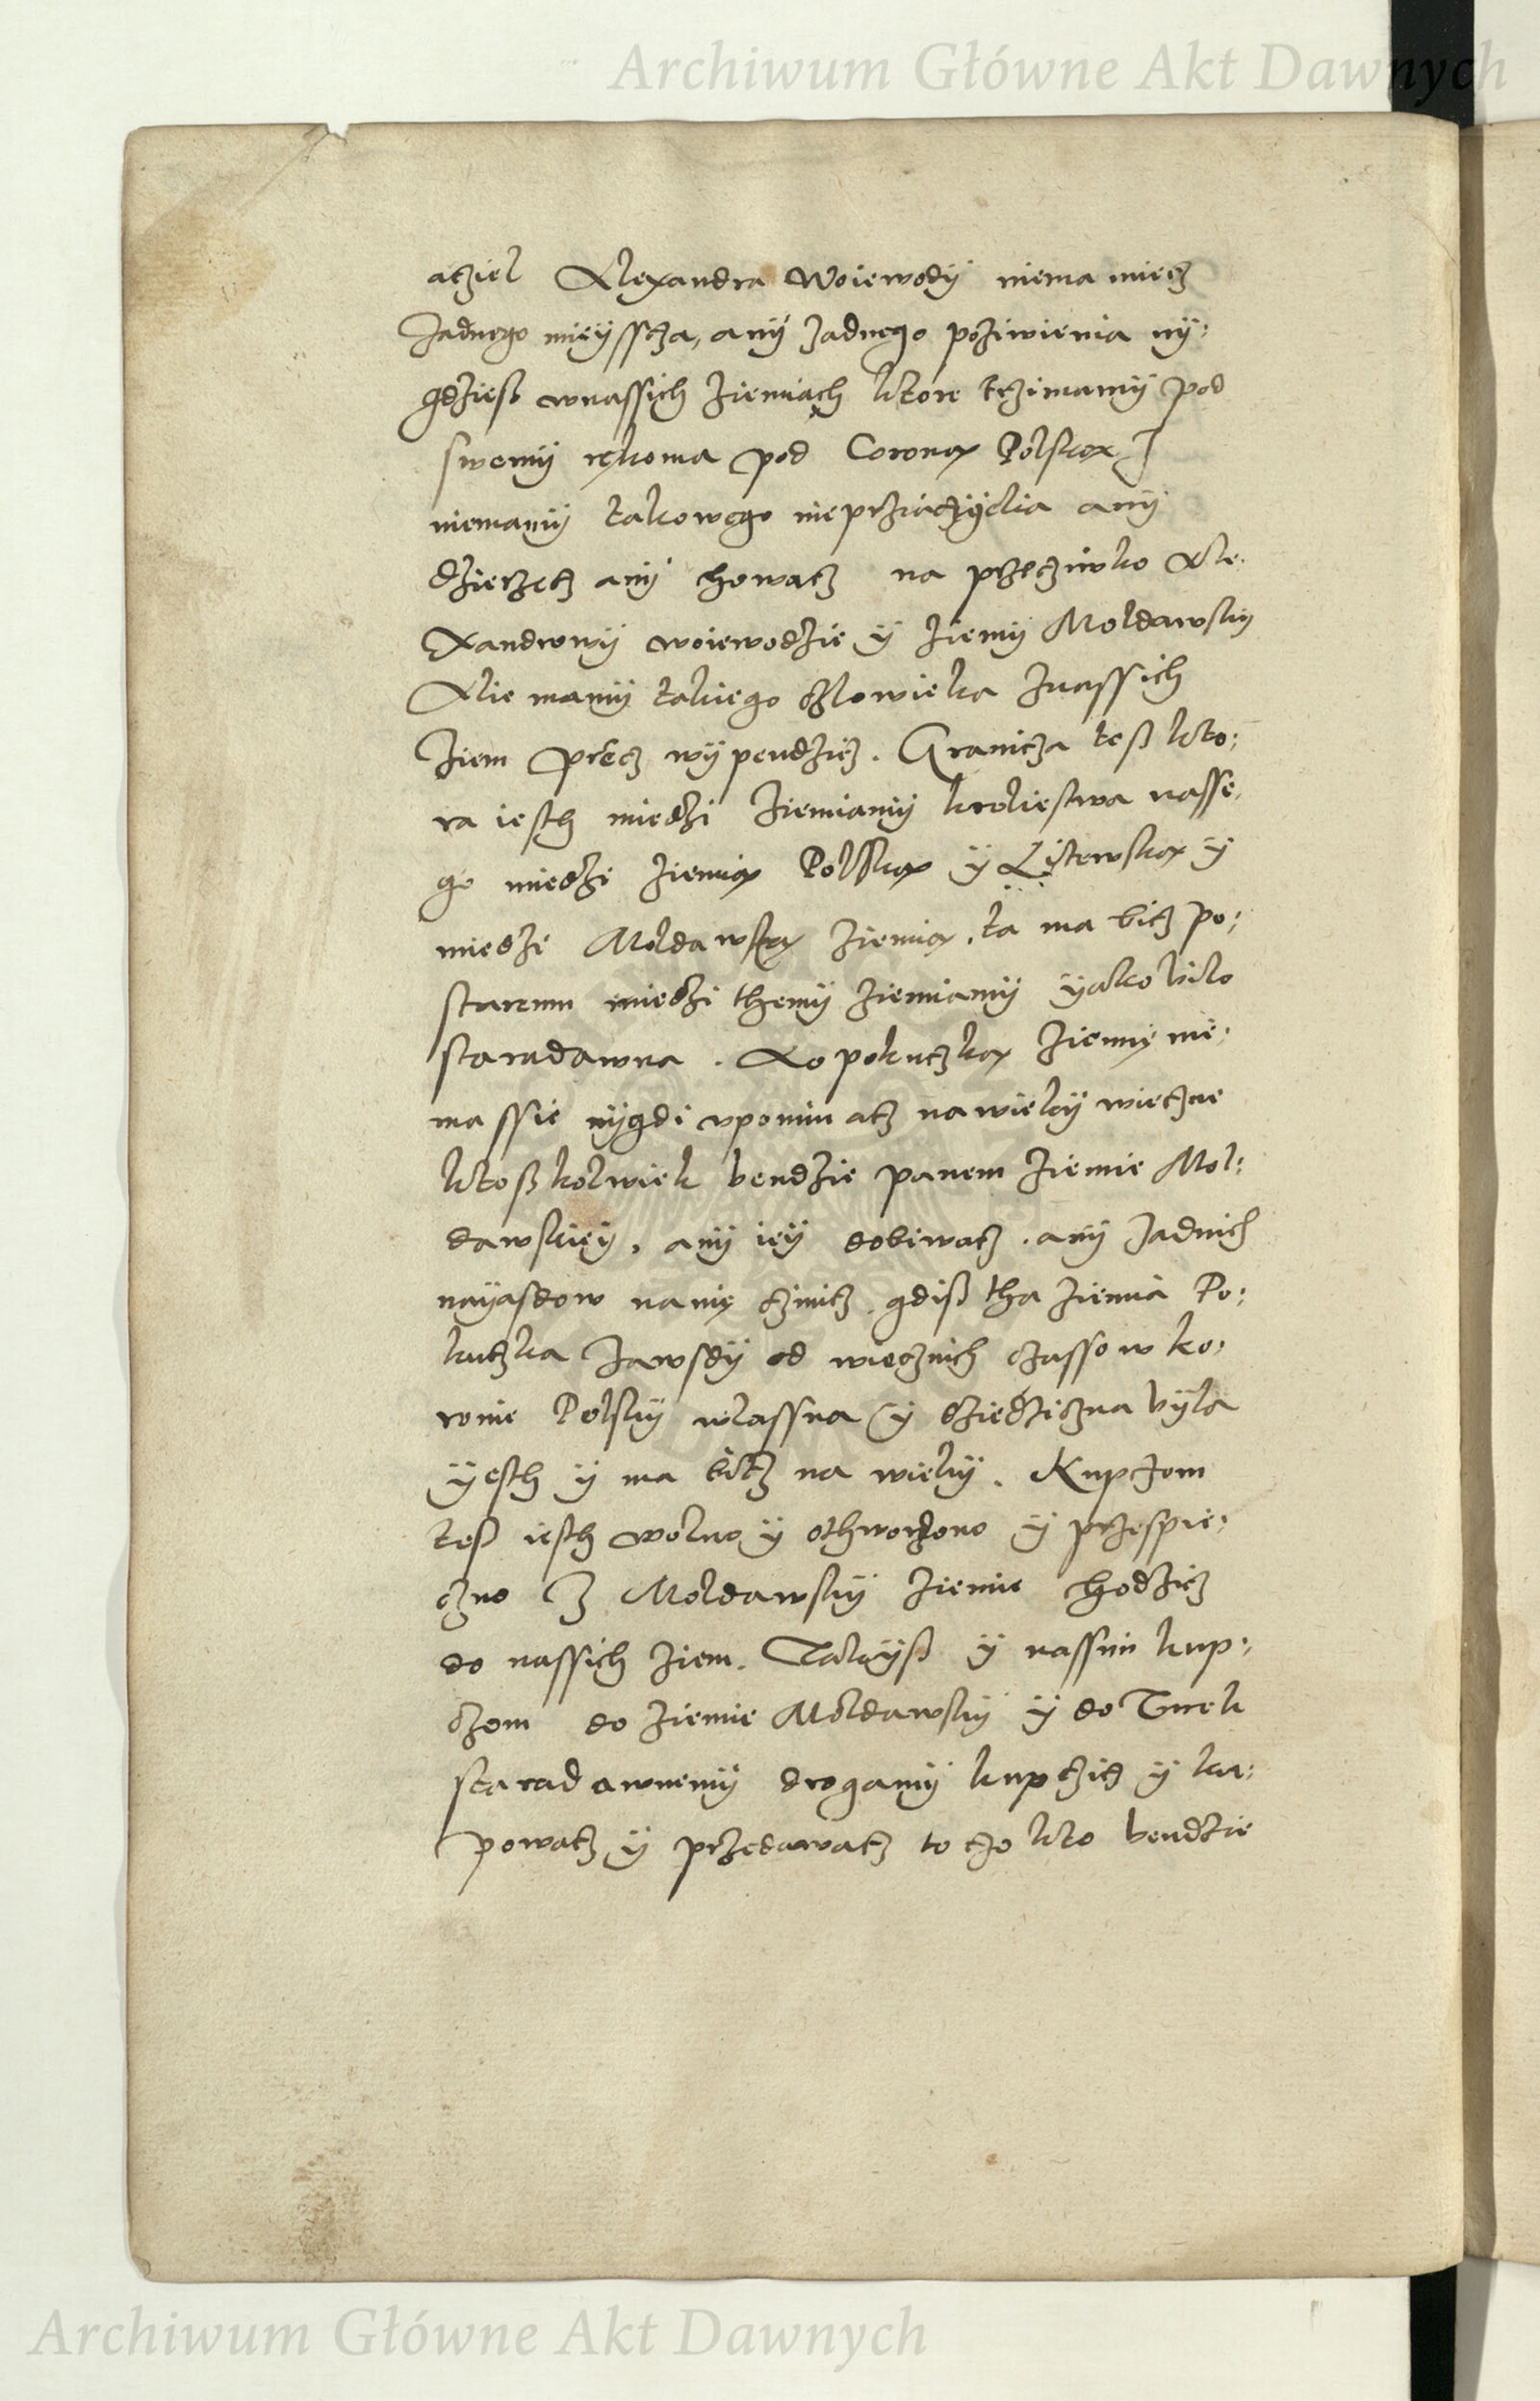 Archiwum Główne Akt Dawnych
atziel Alexandra Woiewodÿ niema miecz
Żadnego mieÿsscza, anÿ żadnego poziwienia nÿ:
gdzieß wnassich ziemiach ktore trzimamÿ pod
swemÿ rękoma pod Coroną Polską
niemamÿ takowego nieprziaczÿelia anÿ
dzierzecz anÿ chowacz na przecziwko Ale:
xandrowÿ woiewodzie ÿ ziemÿ Moldawskÿ
Ale mamÿ takiego człowieka znassich
Ziem precz wÿpendzicz. Granicza teß kto:
ra iesth miedzi ziemiamÿ kroliestwa nasse,
go miedzi ziemią Polską ÿ Litewską ÿ
miedzi Moldawską ziemią, ta ma bicz po:
staremu miedzi themÿ ziemiamÿ ÿako bilo
staradawna. Ao pokuczką ziemię nie:
ma ssie nÿgdi vpominacz nawiekÿ wieczne
ktoßkolwiek bendzie panem ziemie Mol:
dawskieÿ, anÿ ieÿ dobiwacz, anÿ żadnich
naÿasdow nanię czinicz, gdiß tha ziemia Po:
kuczka Zawsdÿ od wiecznich czassow ko:
ronie Polskÿ wlassna ÿ dziedziczna bÿla
ÿesth ÿ ma bicz na wiekÿ. Kupczom
teß iesth wolno ÿ othworzono ÿ przespie:
czno Z Moldawskÿ ziemie chodzicz
do nassich ziem. Takÿß ÿ nassim kup:
czom do ziemie Moldawskÿ ÿ do Turek
staradawnemÿ drogamÿ kupczicz ÿ ku:
powacz ÿ przedawacz to czo kto bendzie
Archiwum Główne Akt Dawnych